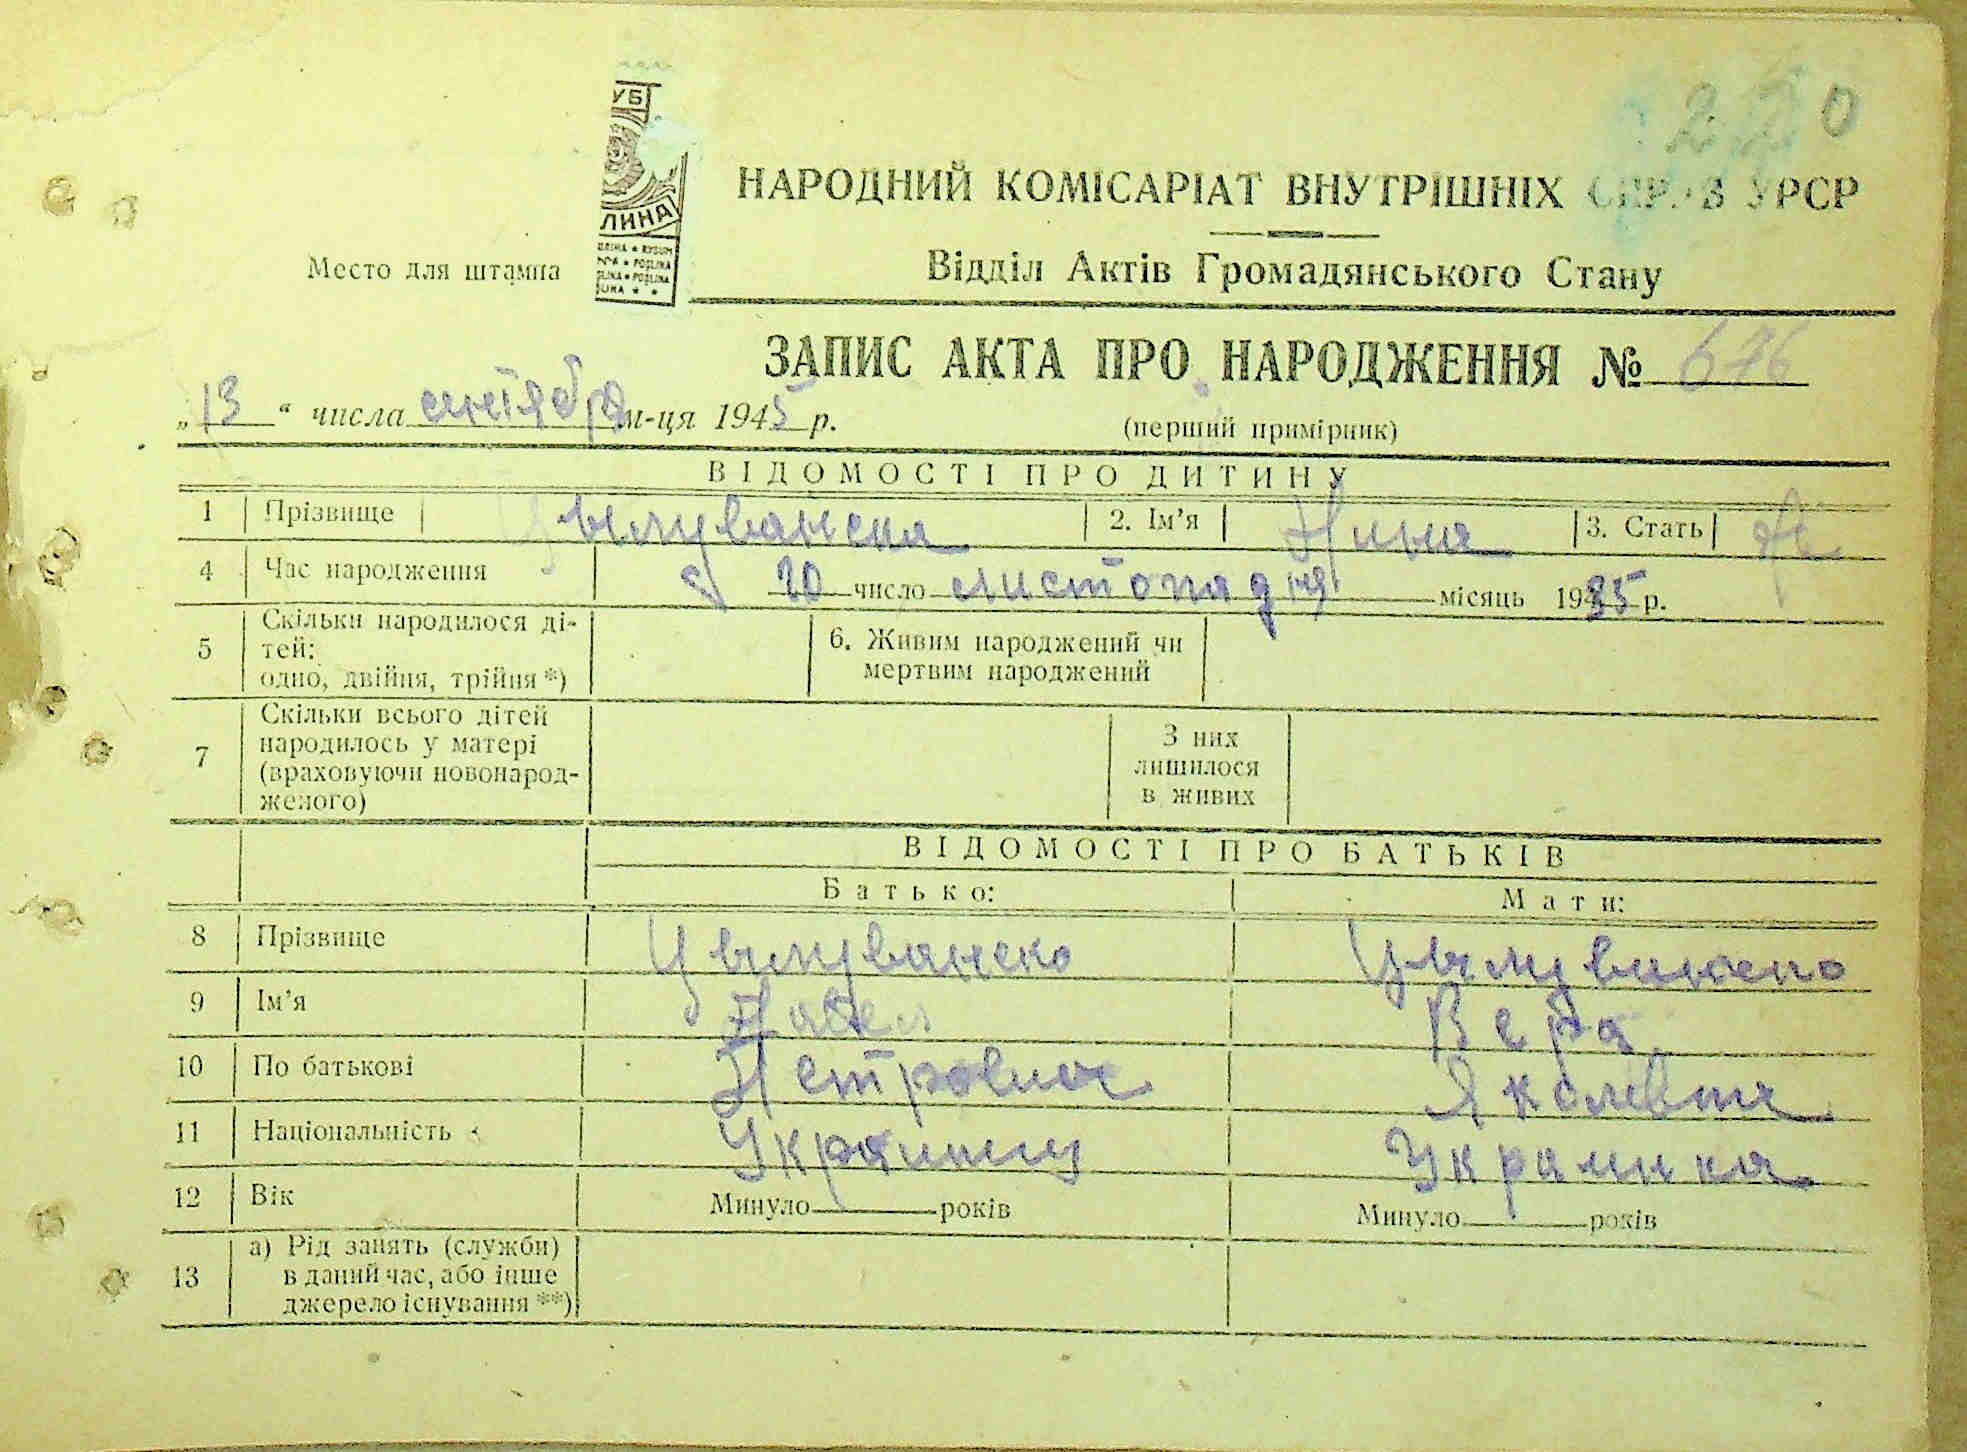 220
УБ
ЛИНА
НАРОДНИЙ КОМІСАРІАТ ВНУТРІШНІХ СПРАВ УРСР
Відділ Актів Громадянського Стану
Место для штампа
ЗАПИС АКТА ПРО НАРОДЖЕННЯ № 676
„13“ числа сентября м-ця 1945 р.
(перший примірник)
ВІДОМОСТІ ПРО ДИТИНУ
1 Прізвище 2. Ім’я Нина 3. Стать Ж
4 Час народження 20 число листопадня місяць 1935 р.
5 Скільки народилося ді-
тей:
одно, двійня, трійня *)
6. Живим народжений чи
мертвим народжений
7 Скільки всього дітей
народилось у матері
(враховуючи новонарод-
женого)
З них
лишилося
в живих
ВІДОМОСТІ ПРО БАТЬКІВ
Батько: Мати:
8 Прізвище
9 Ім’я Павел Вера
10 По батькові Петрович
11 Національність Украинец Украинка
12 Вік Минуло років Минуло років
13 а) Рід занять (служби)
в даний час, або інше
джерело існування **)